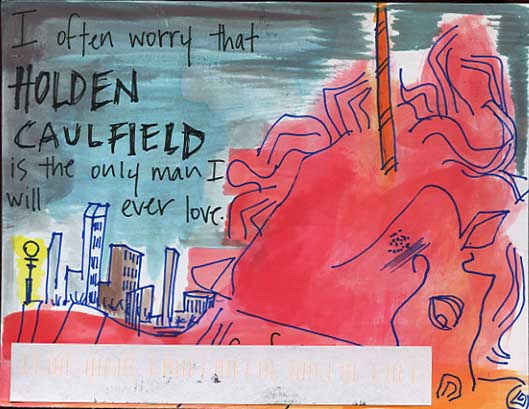 I often worry that
HOLDEN
CAULFIELD
is the only man I
will ever love.